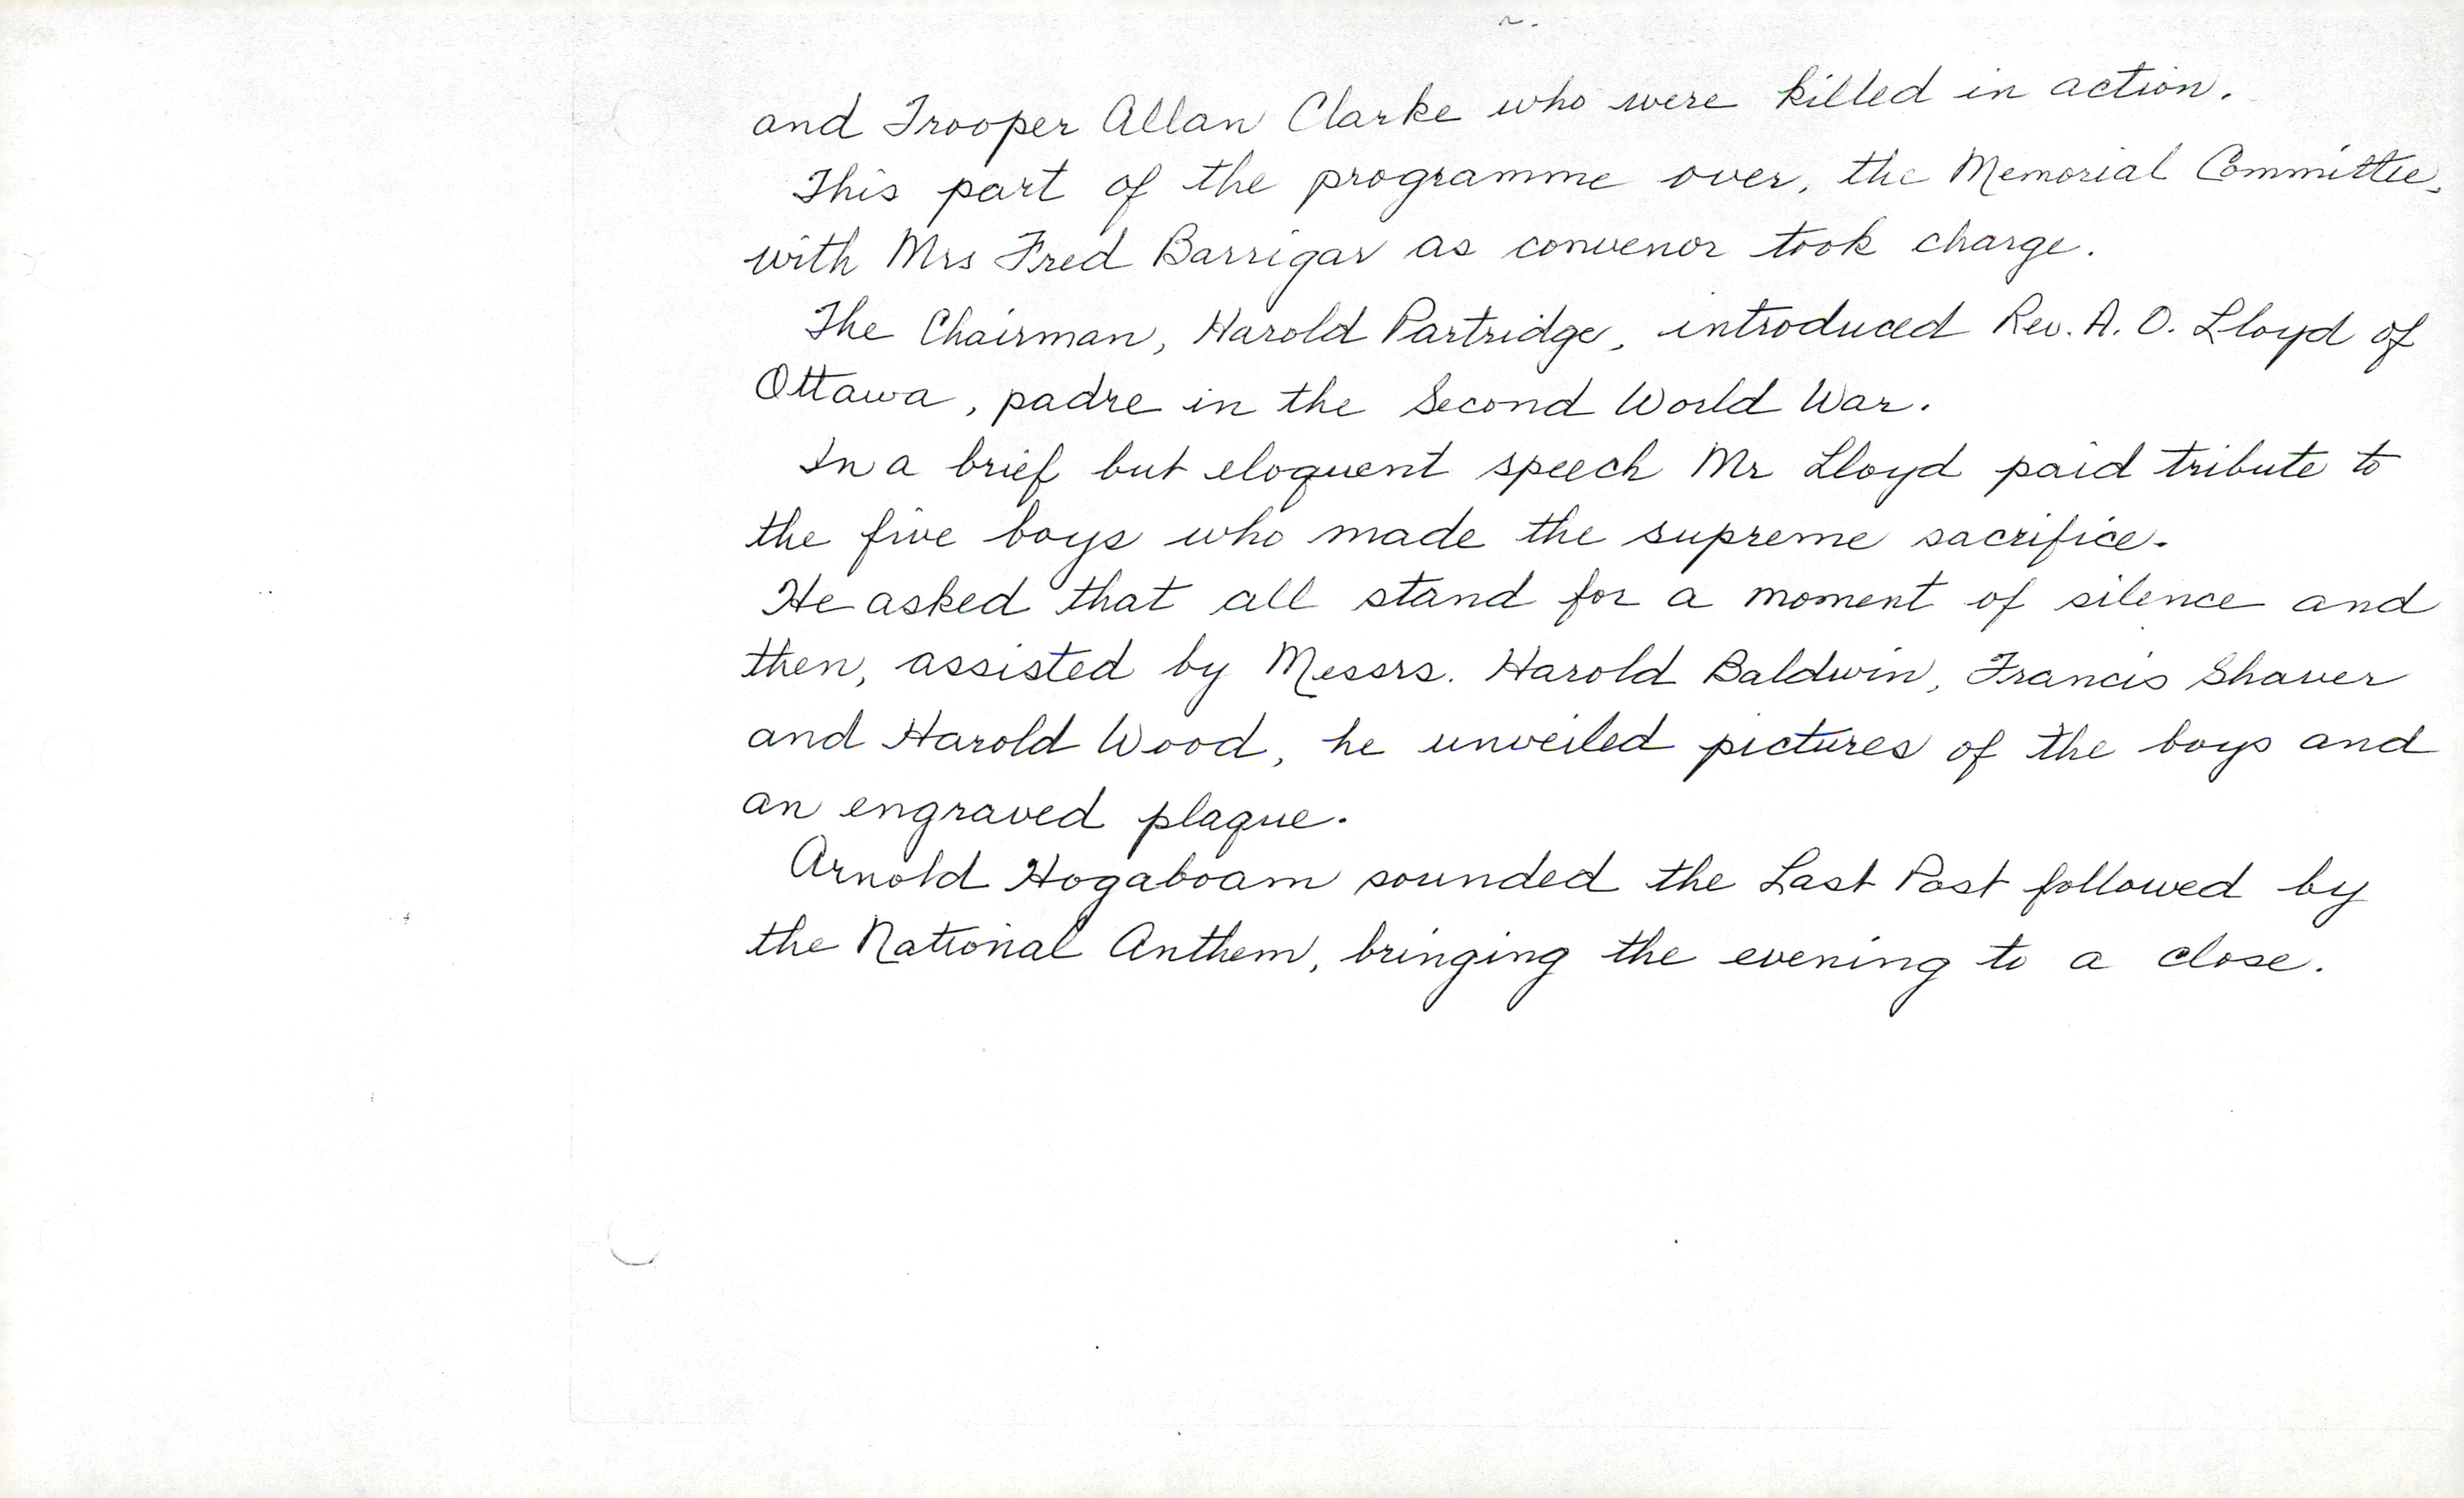 and Trooper Allan Clarke who were killed in action.
This part of the programme over, the Memorial Committee,
with Mrs Fred Barrigar as convenor took charge.
The Chairman, Harold Partridge, introduced Rev. A. O. Lloyd of
Ottawa, padre in the Second World War.
In a brief but eloquent speech Mr Lloyd paid tribute to
the five boys who made the supreme sacrifice.
He asked that all stand for a moment of silence and
then, assisted by Messrs. Harold Baldwin, Francis Shaver
and Harold Wood, he unveiled pictures of the boys and
an engraved plaque.
Arnold Hogaboam sounded the Last Post followed by
the National Anthem, bringing the evening to a close.